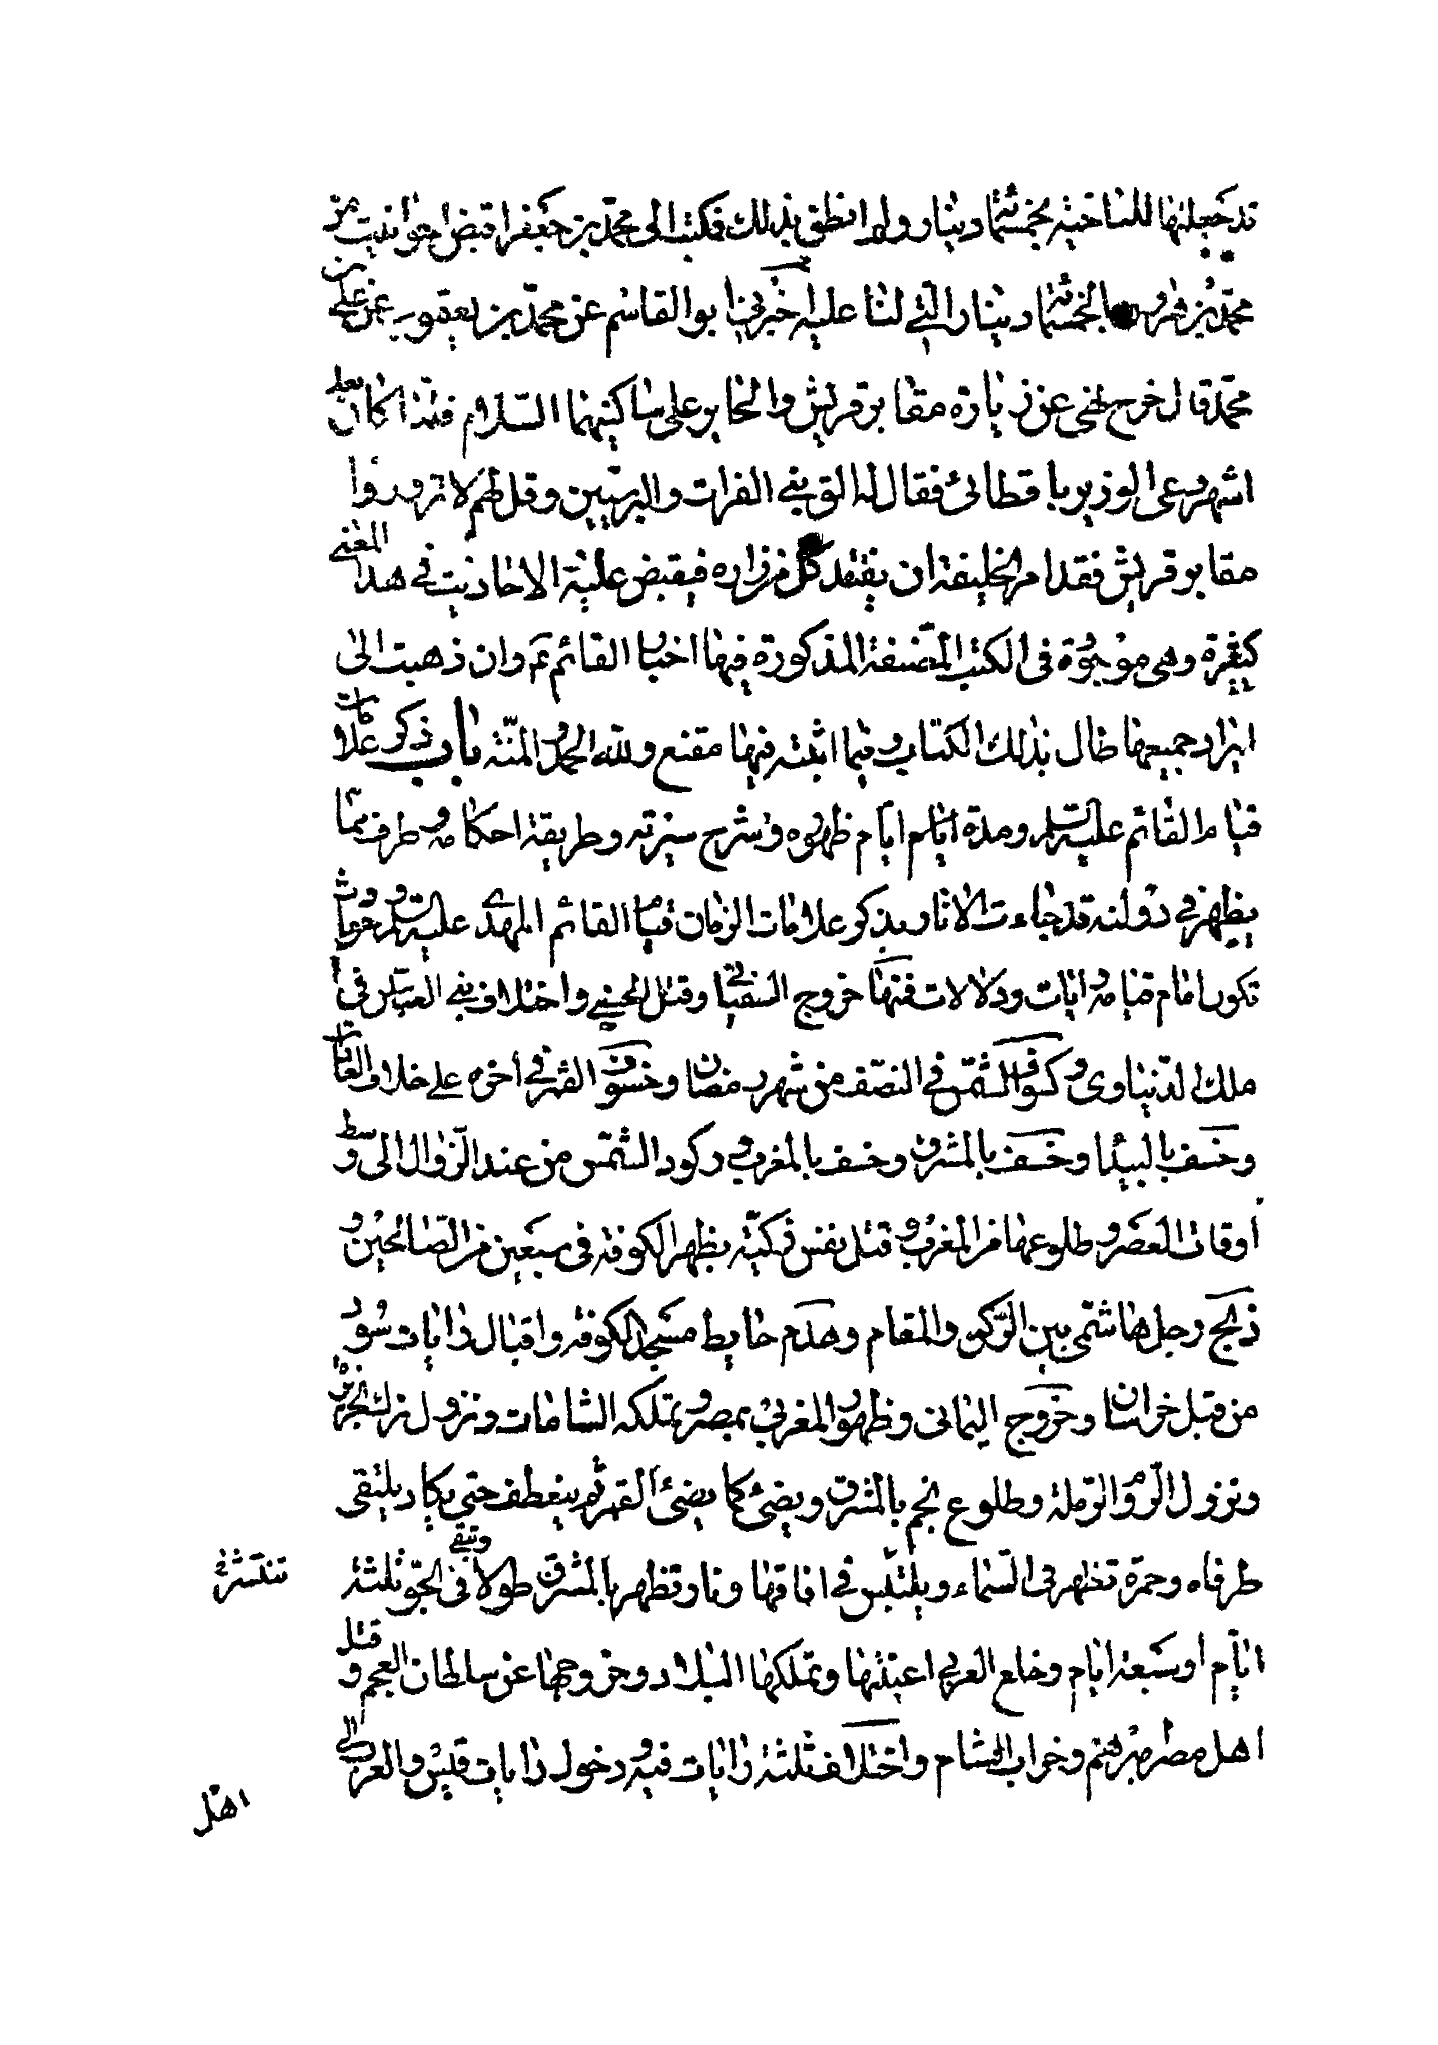 قد جعلتها للناحية بخمسمائة دينار ولم انطق بذلك فكتب الى محمد بن جعفر اقبض الحوانيت من
محمد بن هرون بالخمسمائة دينار التي لنا عليه اخبرني ابو القاسم عن محمد بن يعقوب عن علي بن
محمد قال خرج نهي عن زيارة مقابر قريش والحاير على ساكنيهما السلام فلما كان بعد
اشهر دعى الوزير باقطائي فقال له الق بني الفرات والبرسيين وقل لهم لا تزوروا
مقابر قريش فقد امر الخليفة ان يفتقد كل من زاره فيقبض عليه الاحاديث في هذا المعنى
كثيرة وهي موجودة في الكتب المصنفة المذكورة فيها اخبار القائم ع وان ذهبت الى
ايراد جميعها طال بذلك الكتاب وفيما اثبته فيها مقنع ولله الحمد والمنة باب ذكر علامات
قيام القائم عليه السلم ومدة ايام ايام ظهوره وشرح سيرته وطريقة احكامه وطرف مما
يظهر في دولته قد جاءت الاثار بذكر علامات الزمان قيام القائم المهدي عليه السلم وحوادث
تكون امام قيامه وايات ودلالات فمنها خروج السفياني وقتل الحسني واختلاف بني العباس في ا
ملك الدنياوى وكسوف الشمس في النصف من شهر رمضان وخسوف القمر في أخره على خلاف العادات
وخسف بالبيدا وخسف بالمشرق وخسف بالمغرب و ركود الشمس من عند الزوال الى وسط
أوقات العصر وطلوعها من المغرب وقتل نفس زكية بظهر الكوفة في سبعين من الصالحين و
ذبح رجل هاشمي بين الركن والمقام وهدم حايط مسجد الكوفة واقبال رايات سود
من قبل خراسان وخروج اليماني وظهور المغربي بمصر وتملكه الشامات ونزول ترك الجزيرة
ونزول الروم الرملة وطلوع نجم بالمشرق ويضئ كما يضئ القمر ثم ينعطف حتى يكاد يلتقي
طرفاه وحمرة تظهر في السماء ويلتبس في افاقها ونار تظهر بالمشرق طولا وتبقى في الجو ثلثة
تنتشر في
ايام أو سبعة ايام وخلع العرب اعنتها وتملكها البلاد وخروجها عن سلطان العجم وقتل
اهل مصر ميرهم وخراب الشام واختلاف ثلثة رايات فيه ودخول رايات قيس والعرب الى
اهل